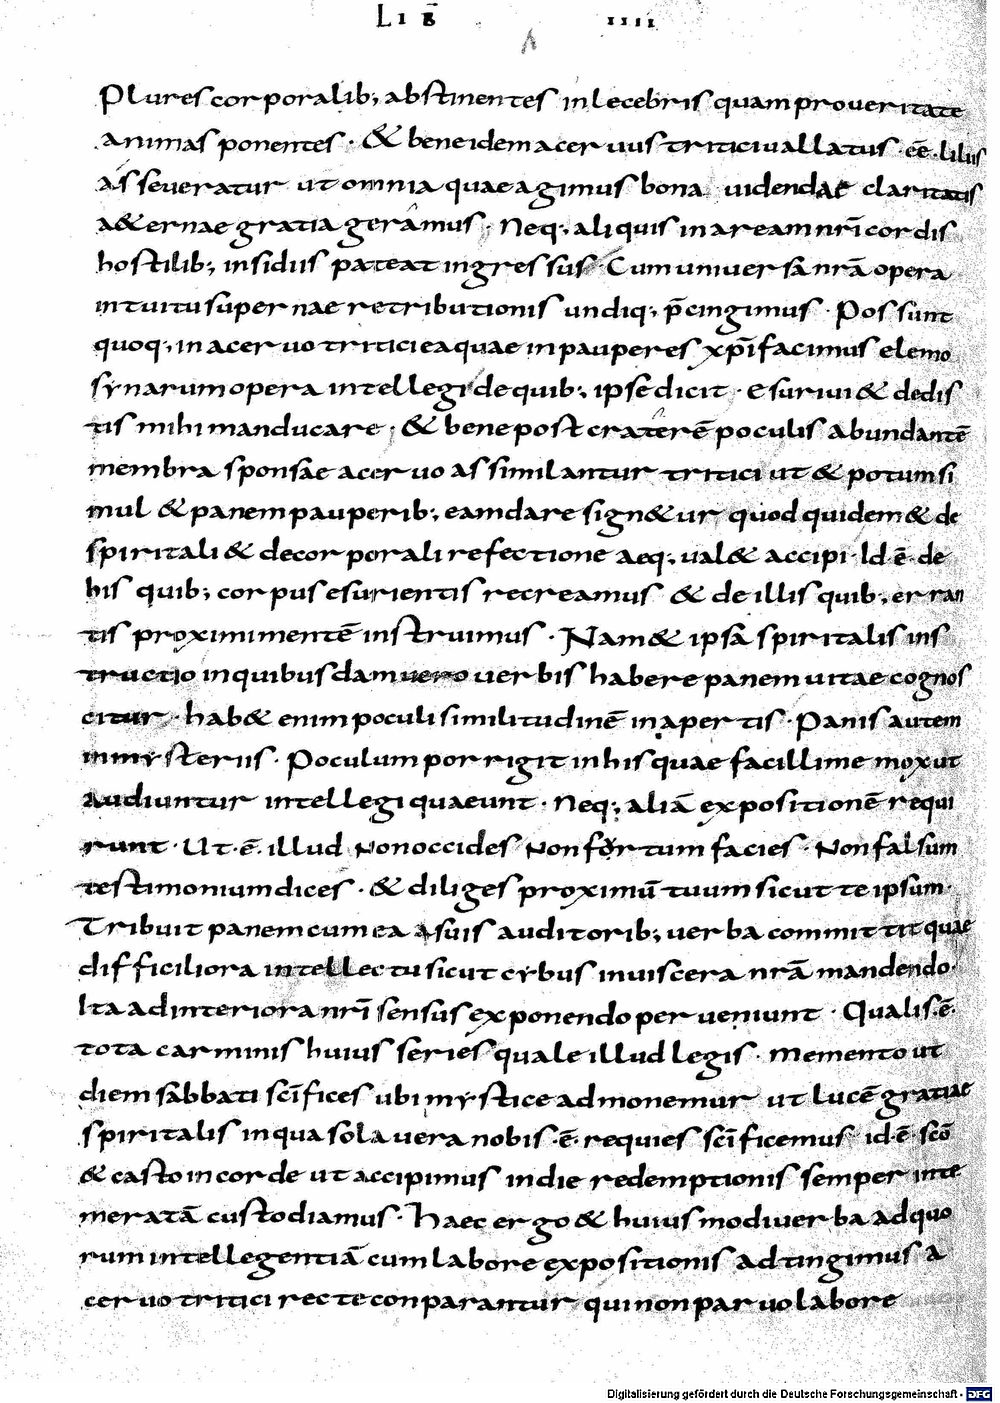 LIB IIII
Plures corporalib; abstinentes inlecebris quam pro ueritate
animas ponentes · & bene idem aceruus tritici uallatus ·eē· liliis
asseueratur ut omnia quae agimus bona uidendae claritatis
a&ernae gratia geramus · Neq; aliquis in aream nr̄i cordis
hostilib; insidiis pateat ingressus · Cum uniuersa nr̄a opera
intuitu supernae retributionis undiq; p̄cingimus · Possunt
quoq; in aceruo tritici ea quae in pauperes xp̄i facimus elemo
synarum opera intellegi de quib; ipse dicit · Esuriui & dedis
tis mihi manducare · & bene post craterē poculis abundantē
membra sponsae aceruo assimilantur tritici ut & potum si
mul & panem pauperib; eam dare sign&ur quod quidem & de
spiritali & de corporali refectione aeq; ual& accipi · Id·ē· de
his quib; corpus esurientis recreamus & de illis quib; erran
tis proximi mentē instruimus · Nam & ipsa spiritalis ins
tructio in quibusdam uero uerbis habere panem uitae cognos
citur · hab& enim poculi similitudinē in apertis · Panis autem
in mysteriis · Poculum porrigit in his quae facillime mox ut
audiuntur intellegi quaeunt · Neq; aliā expositionē requi
runt · Ut·ē· illud Non occides Non fortum facies · Non falsum
testimonium dices · & diliges proximū tuum sicut te ipsum ·
Tribuit panem cum ea a suis auditorib; uerba committit quae
difficiliora intellectu sicut cybus in uiscera nr̄a mandendo ·
Ita ad interiora nr̄i sensus exponendo perueniunt · Qualis·ē·
tota carminis huius series quale illud legis · Memento ut
diem sabbati sc̄ifices ubi mystice admonemur ut lucē gratiae
spiritalis in qua sola uera nobis·ē· requies sc̄ificemus id·ē· sc̄o
& casto in corde ut accipimus in die redemptionis semper inte
meratā custodiamus · Haec ergo & huiusmodi uerba ad quo
rum intellegentiā cum labore expositionis adtingimus a
ceruo tritici recte conparantur qui non paruo labore
Digitalisierung gefördert durch die Deutsche Forschungsgemeinschaft - DFG